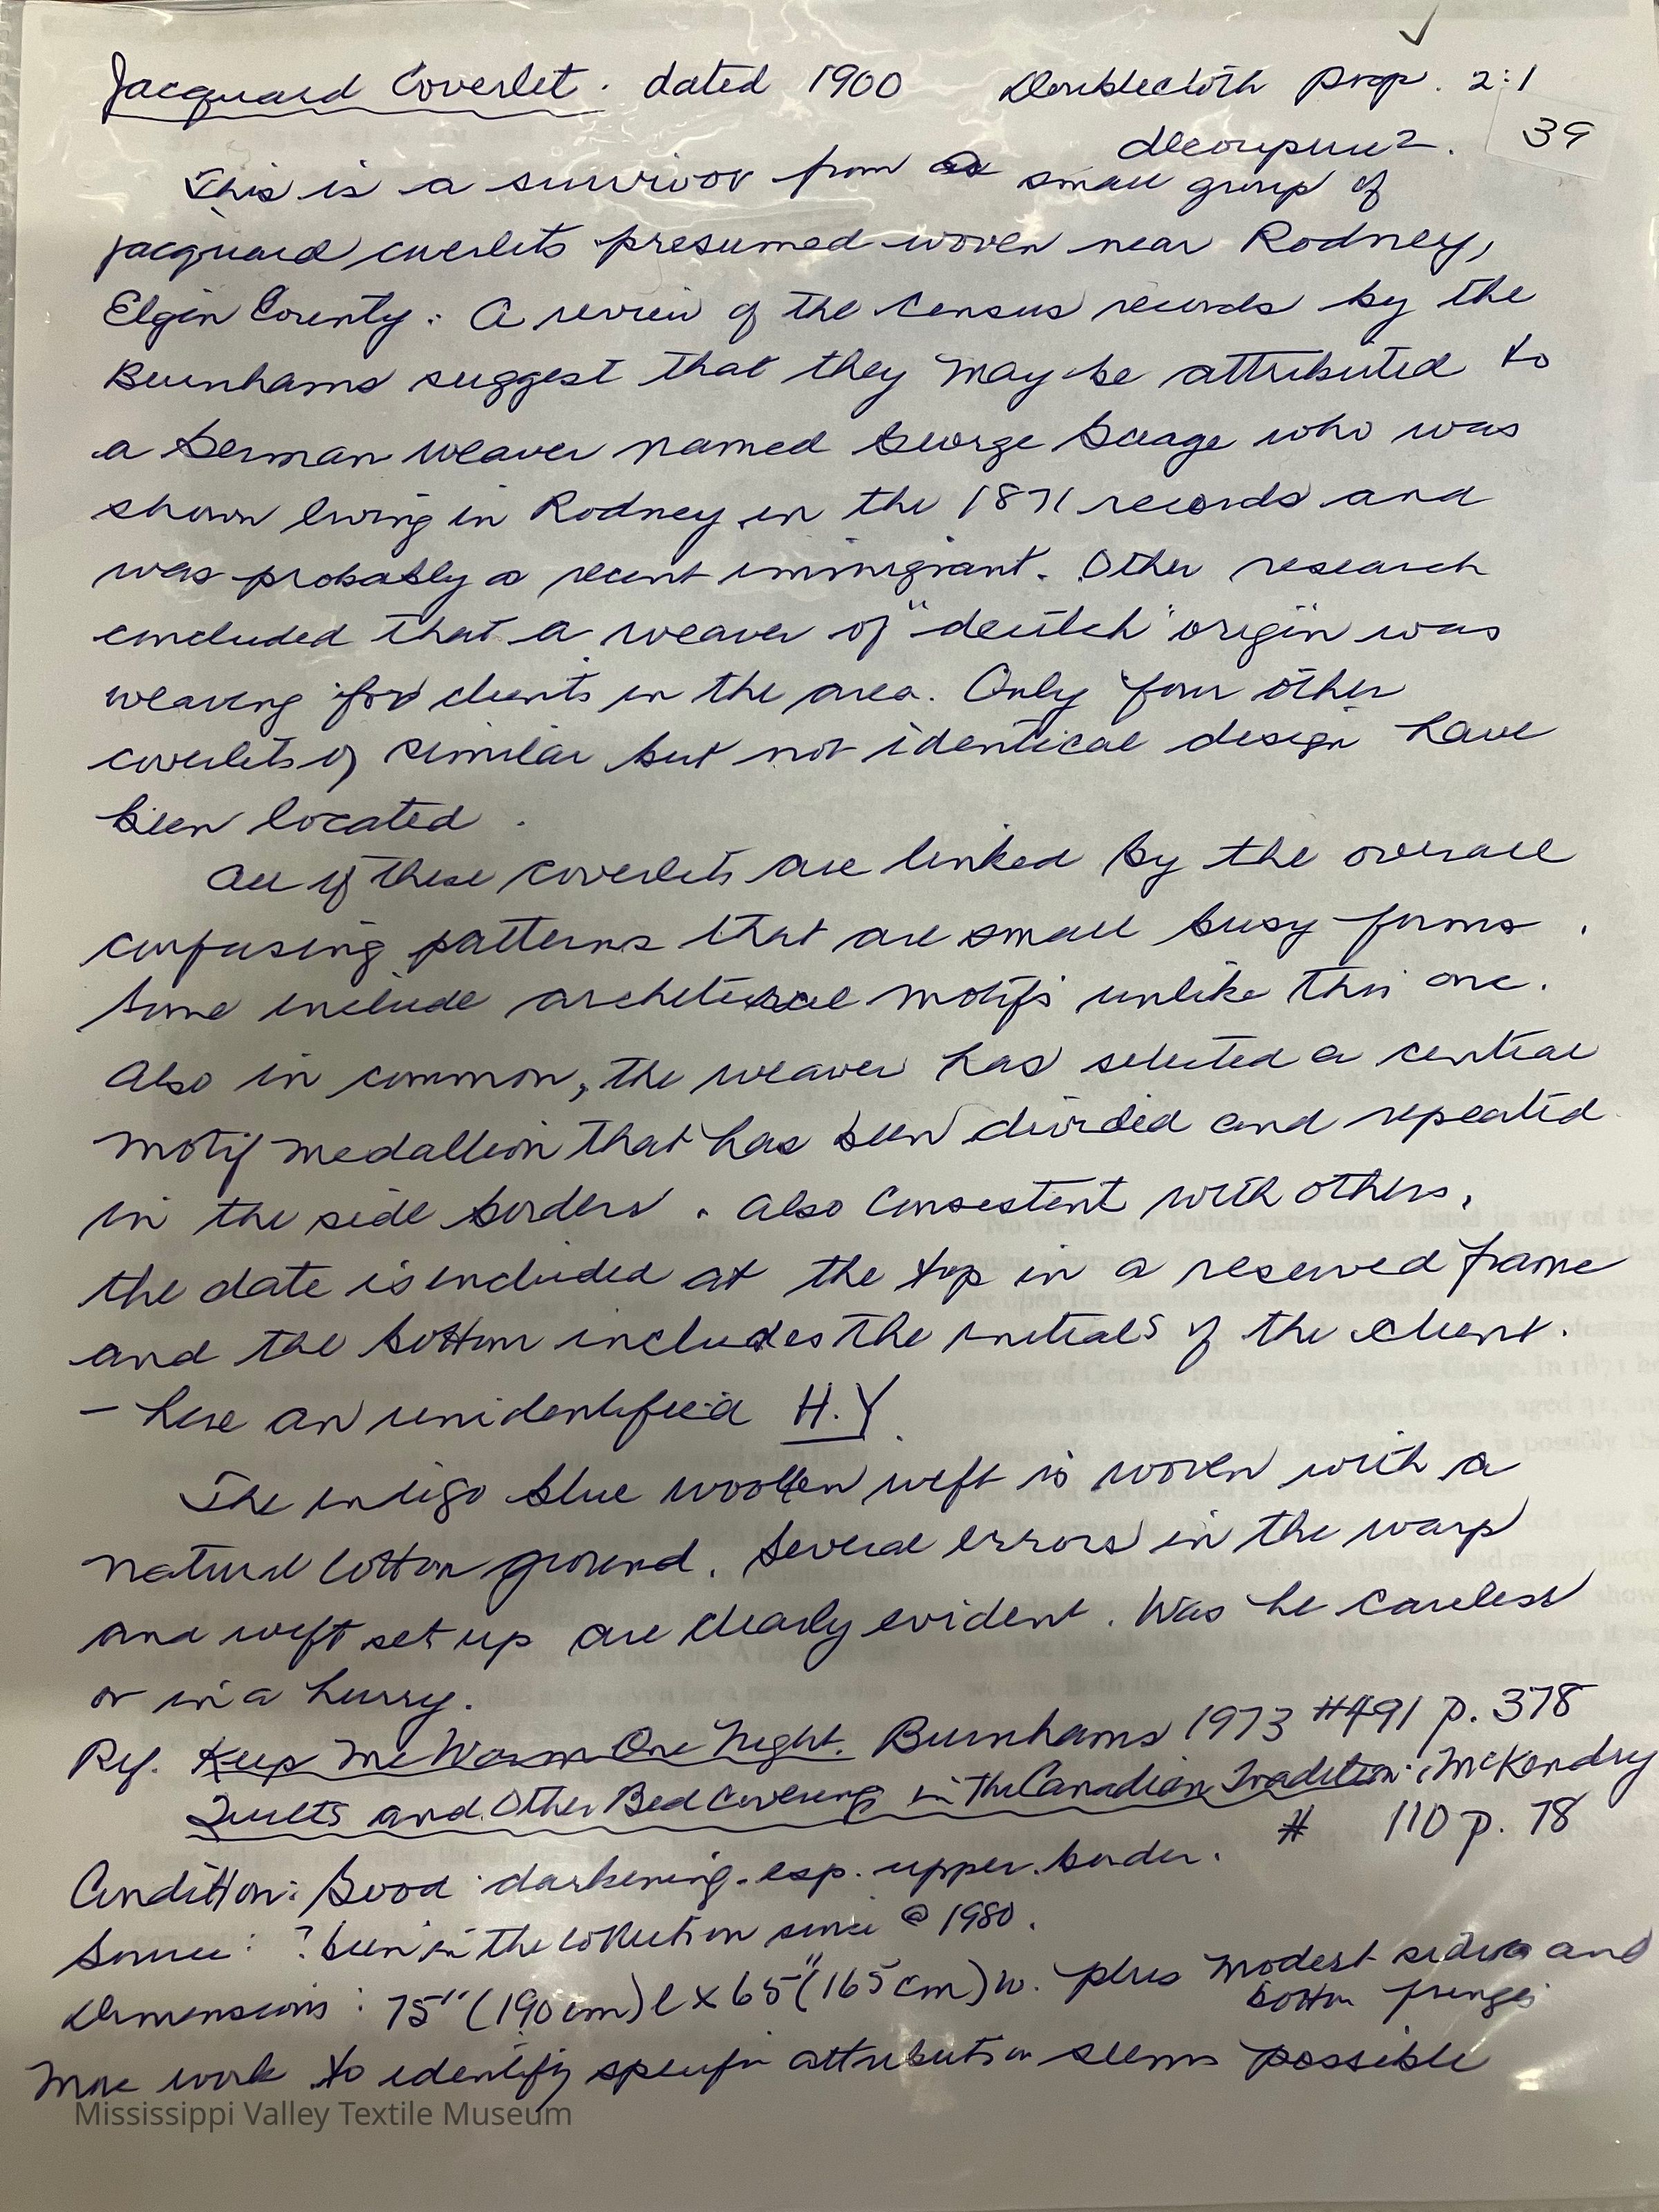 Jacquard Coverlet. dated 1900 Doublecloth prop. 2:1
39
This is a survivor from a small group of
jacquard coverlets presumed woven near Rodney,
Elgin County. A review of the Census records by the
Burnhams suggest that they may be attributed to
a German weaver named George Gaage who was
shown living in Rodney in the 1871 records and
was probably a recent immigrant. Other research
concluded that a weaver of "deutch" origin was
weaving for clients in the area. Only four other
coverlets of similar but not identical design have
been located.
All of these coverlets are linked by the overall
confusing patterns that are small busy forms.
Some include motifs unlike this one.
Also in common, the weaver has selected a central
motif medallion that has been divided and repeated
in the side borders. Also consistent with others,
the date is included at the top in a reserved frame
and the bottom includes the initials of the client.
- here an unidentified H.Y.
The indigo blue woollen weft is woven with a
natural cotton ground. Several errors in the warp
and weft set up are clearly evident. Was he careless
or in a hurry.
Ref. Keep Me Warm One Night. Burnhams 1973 #491 p. 378
Quilts and Other Bed Coverings in The Canadian Tradition: McKendry
# 110 p. 78
Condition: Good darkening - esp. upper border.
Source: ? been in the collection since @ 1980.
Dimensions: 75" (190 cm) l x 65" (165 cm) w. plus modest sides and
bottom fringes
More work to identify specific attribution seems possible
Mississippi Valley Textile Museum